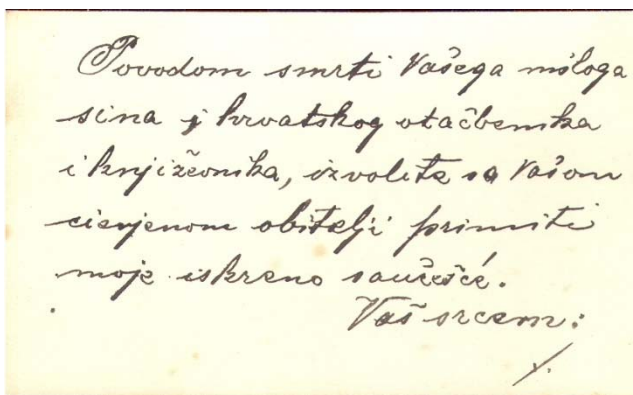 Povodom smrti Vašega miloga
sina i hrvatskog otačbenika
i književnika, izvolite sa Vašom
cienjenom obitelji primiti
moje iskreno saučešće.
Vaš srcem: